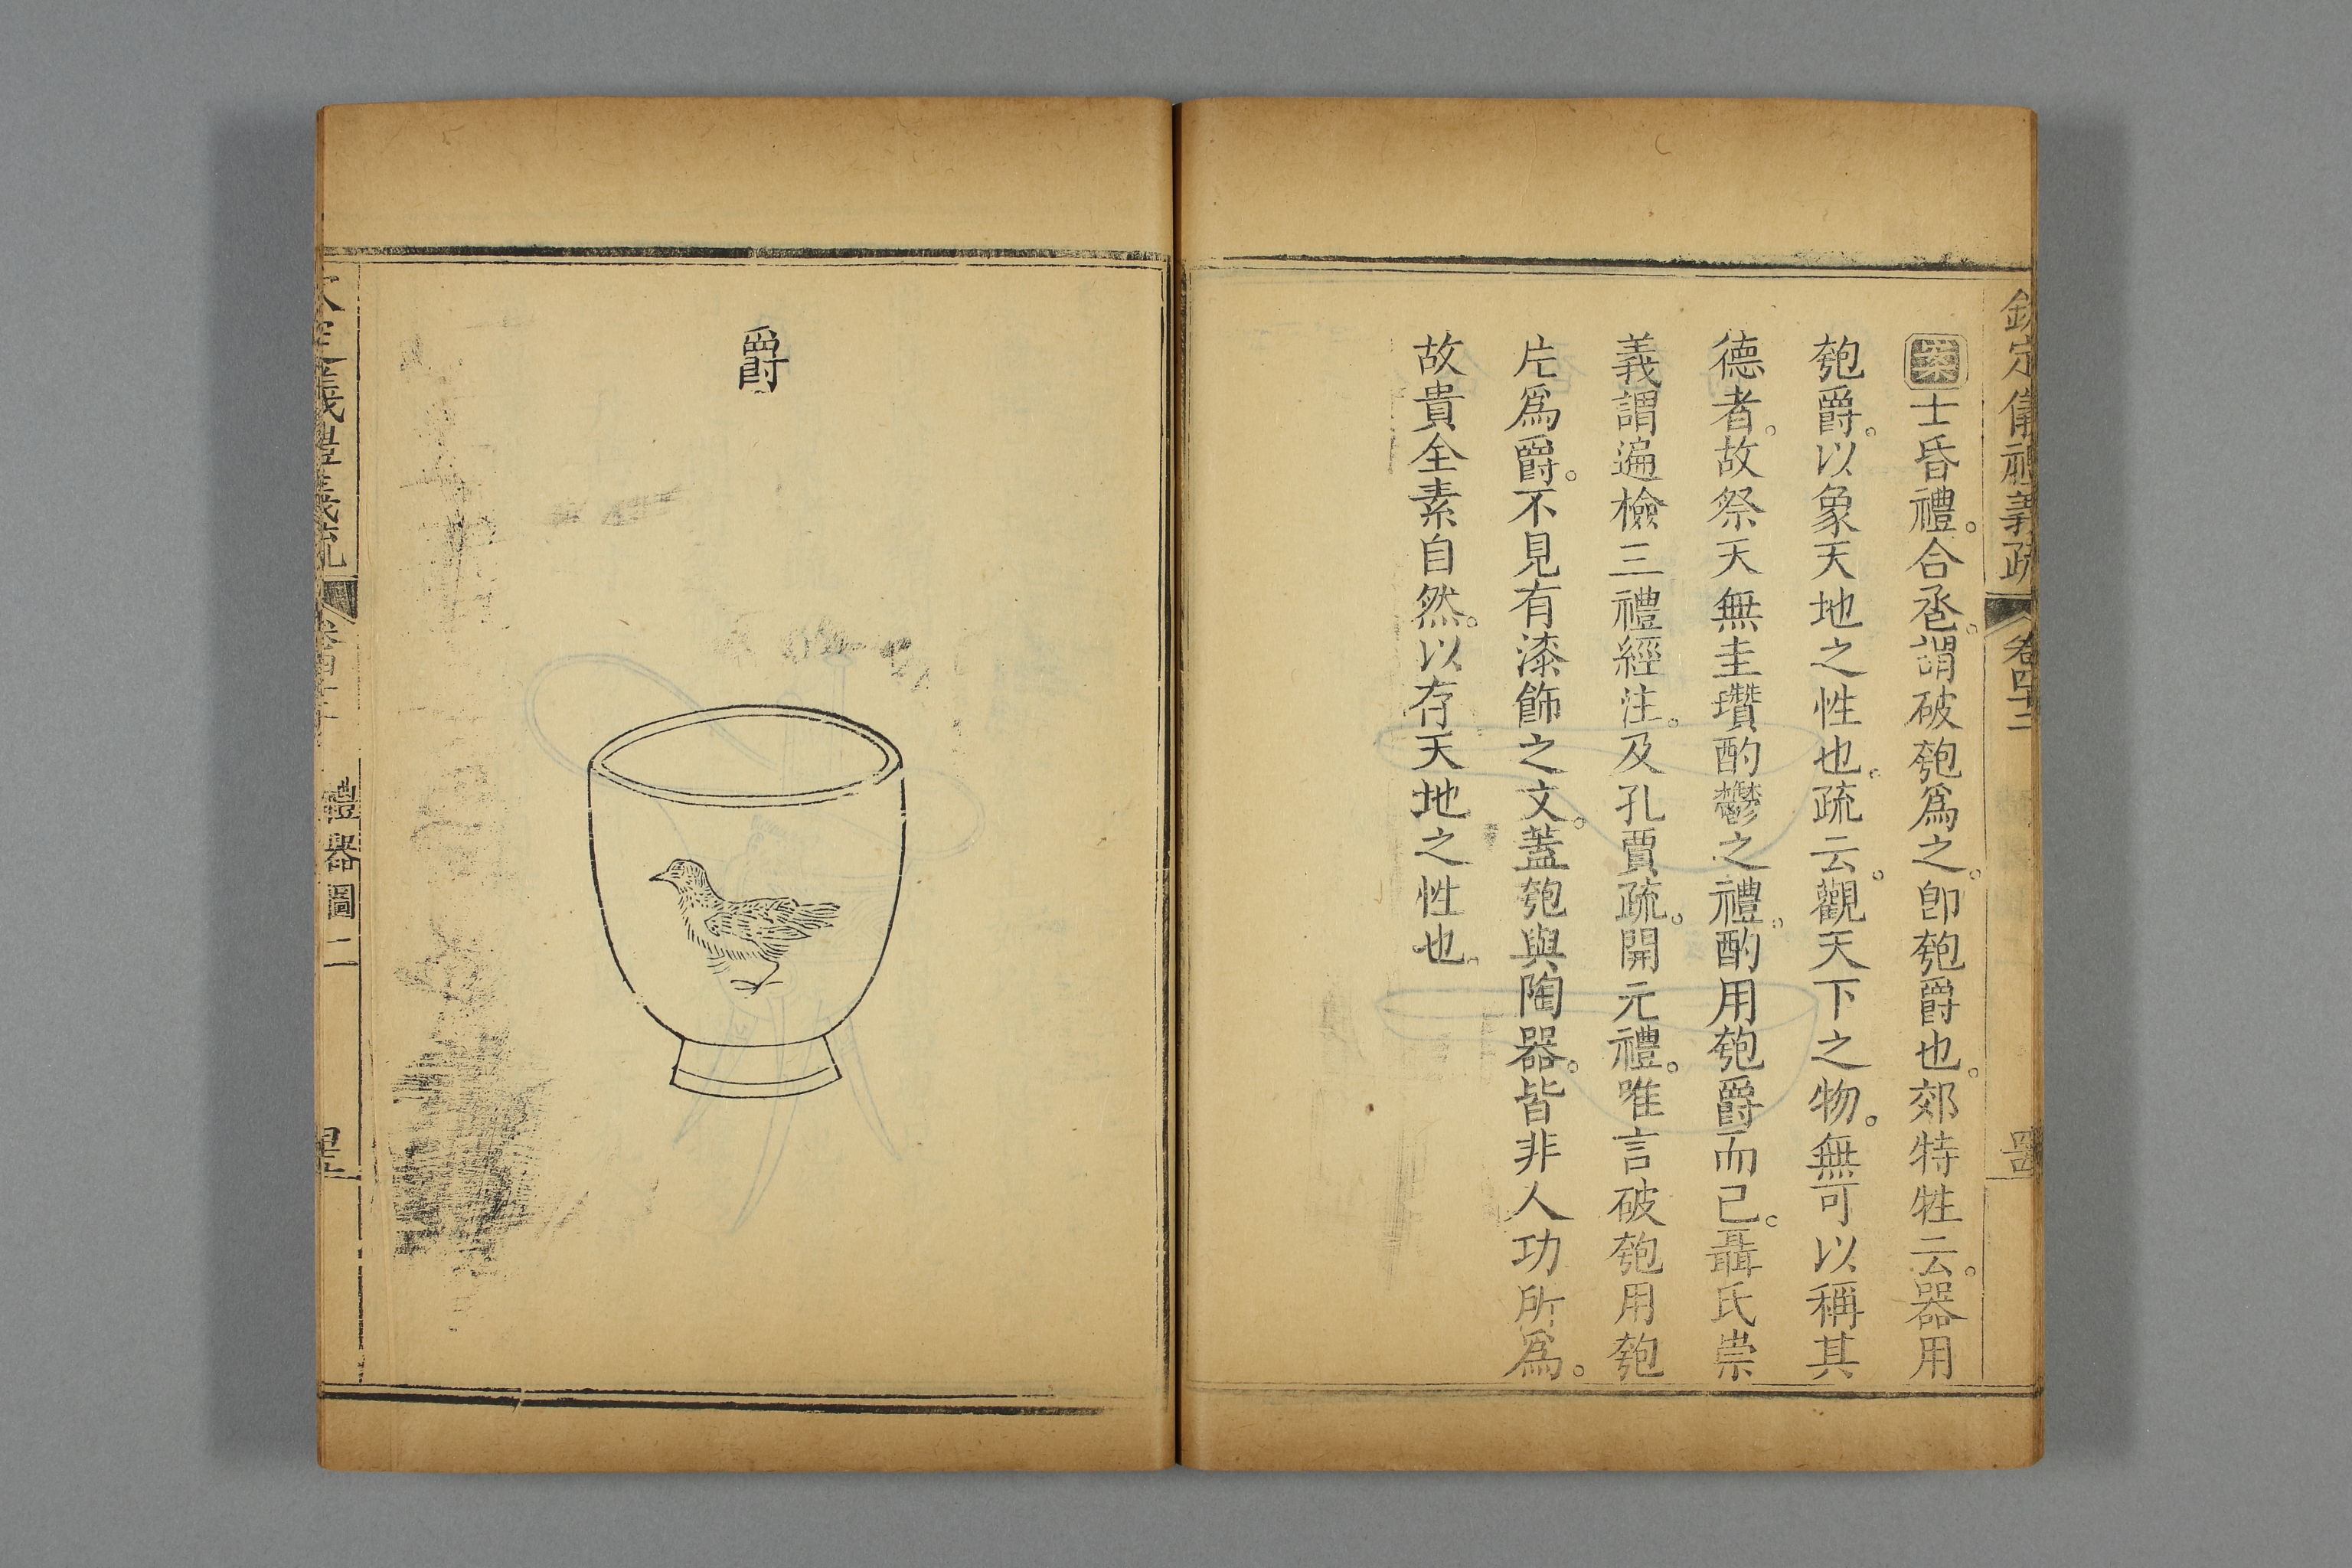 欽定儀禮義疏 卷四十二
案士昏禮。合巹。謂破匏爲之。卽匏爵也。郊特牲云。器用
匏爵。以象天地之性也。疏云。觀天下之物。無可以稱其
德者。故祭天無圭瓚酌鬱之禮。酌用匏爵而已。聶氏崇
義謂遍檢三禮經注。及孔賈疏。開元禮。唯言破匏用匏
片爲爵。不見有漆飾之文。蓋匏與陶器。皆非人功所爲。
故貴全素自然。以存天地之性也。
爵
義禮義疏 禮器圖二